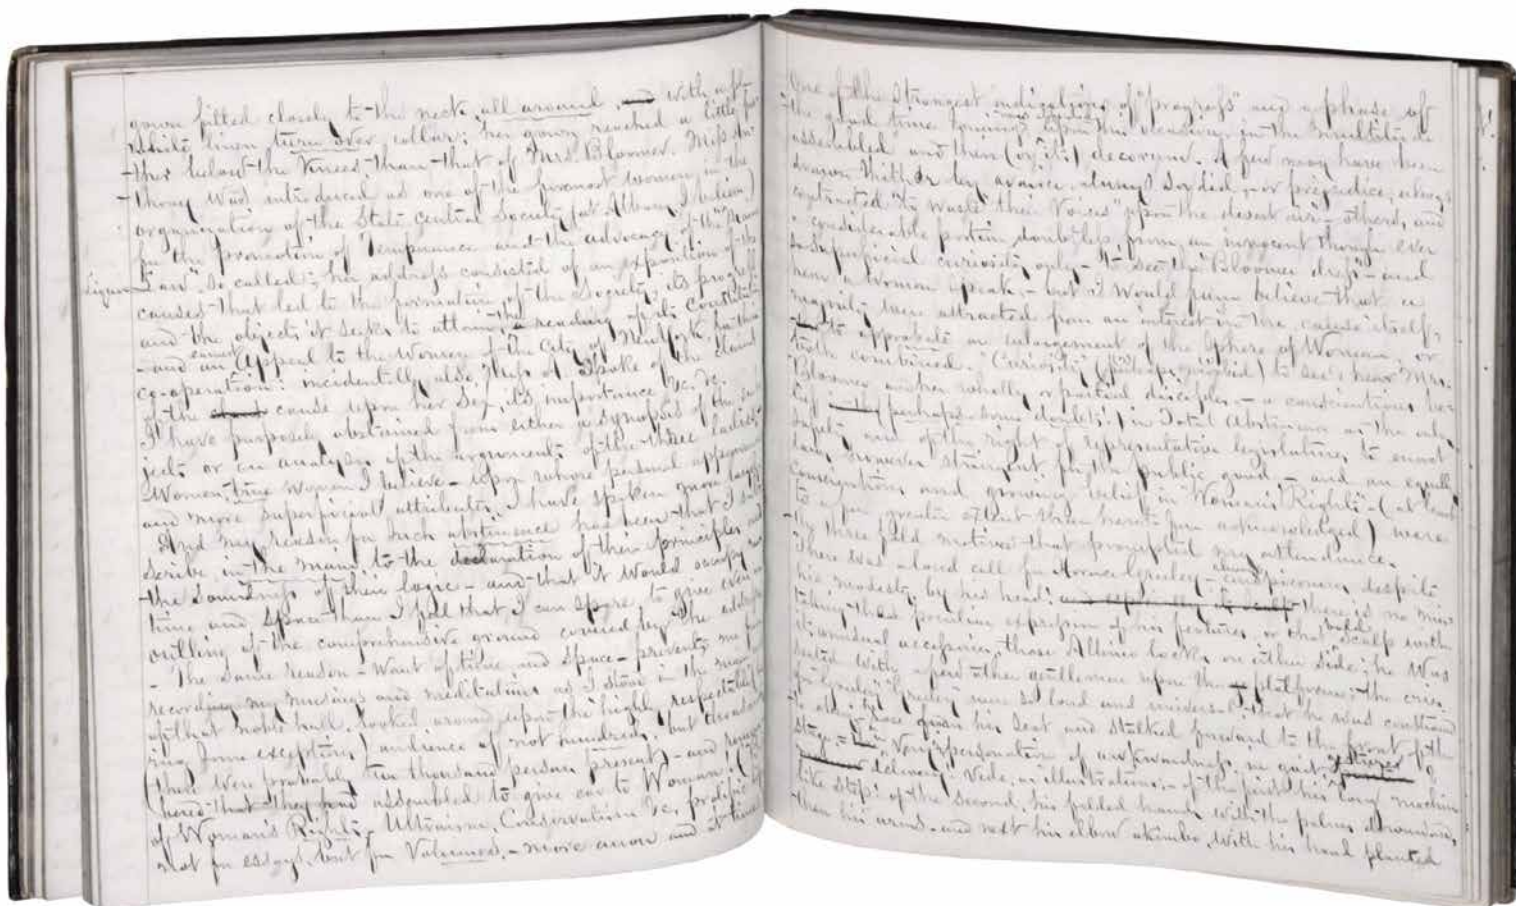 gown fitted closely to the neck, all around, and with a
white linen turn over collar; her gown reached a little fur-
ther below the Knees, than that of Mrs. Bloomer. Miss An-
thony was introduced as one of the foremost women in the
organization of the State Central Society (at Albany, I believe)
for the promotion of Temperance and the advocacy of the "Maine
Liquor Law" so called; her address consisted of an exposition of the
causes that led to the formation of the Society, its progress
and the objects it seeks to attain, the reading of its Constitution
- and an earnest Appeal to the Women of the City of New York, for their
co-operation: incidentally, also, Miss A. spoke of the claims
of the cause upon her sex, its importance &c. &c.
I have purposely abstained from either a synopsis of the sub-
ject, or an analysis of the arguments of these three ladies -
Women, true women I believe - upon whose personal appearance
and more superficial attributes, I have spoken more largely
And my reason for such abstinence has been that I sub-
scribe, in the main, to the declaration of their principles and
the soundness of their logic - and that it would occupy more
time and space than I feel that I can spare, to give even an
outline of the comprehensive ground covered by the addresses
- The same reason - want of time and space - prevents me from
recording my musings and meditations as I stood in the
of that noble hall, looked around upon the highly respectable (
some excepting) audience of not hundreds, but thousands
(there were probably ten thousand persons present) - and
that they had assembled to give ear to Woman! (
of Woman's Rights, Ultraism, Conservatism &c, prolific
not for essays, but for Volumes, - more anon and at times
One of the strongest indications of "progress" and a phase of
the good time coming, was upon this occasion, in the multitude
assembled and their (or its) decorum. A few may have been
drawn thither by avarice, always sordid, - or prejudice, always
contracted "to waste their voices" upon the desert air - others, and
a considerable portion doubtless, from an innocent though ever
so superficial curiosity only - to see the "Bloomer dress" - and
hear a Woman speak, - but I would fain believe that a
majority were attracted from an interest in the cause itself,
to approbate an enlargement of the sphere of Woman, or
both combined. Curiosity (perhaps) to see & hear Mrs.
Bloomer and her wholly or partial disciples, - a conscientious be-
lief (perhaps some doubts!) in Total Abstinence as the only
safety and of the right of representative legislatures to enact
laws, however stringent, for the public good, - and an equally
conscientious and growing belief in "Woman's Rights" - (at least
to a far greater extent than heretofore acknowledged) were
the three fold motives that prompted my attendance.
There was a loud call for Horace Greeley - always conspicuous, despite
his modesty, by his head: there is no mis-
taking the peculiar expression of his features, or that bald scalp with
its unusual accessories, those Albino locks, on either side; he was
seated with a few other gentlemen upon the platform: the cries
for "Greeley" "Greeley" were so loud and universal that he was constrained
to arise; rose from his seat and stalked forward to the front of the
stage, - the very personation of awkwardness, in gait, gesture &
delivery: Vide, as illustrations, - of the first his long machine
like step; of the second, his folded hands, with the palms downward,
then his arms - and next his elbow akimbo, with his hand planted